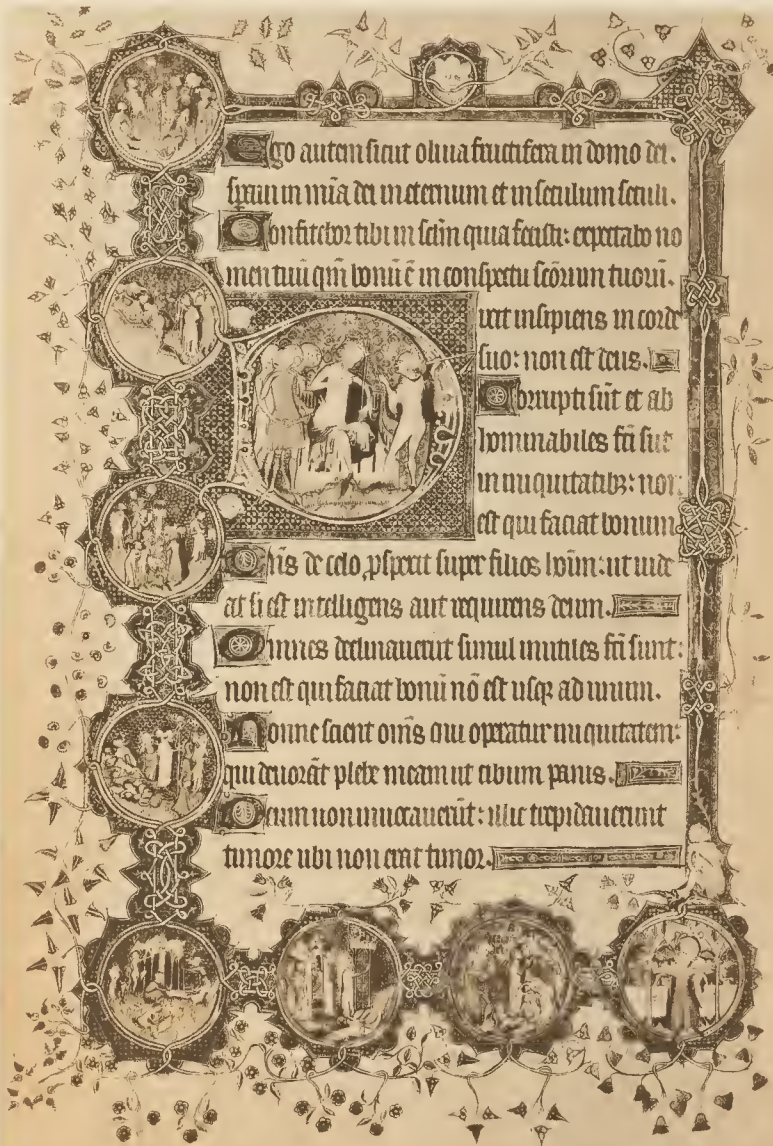 Ego autem sicut oliua fructifera in domo dei.
speraui in mīa dei in eternum et in seculum seculi.
Confitebor tibi in sc̄lm quia fecisti: expectabo no
men tuū qm̄ bonū ē in conspectu sc̄orum tuorū.
Dixit insipiens in corde
suo: non est deus.
Corrupti sūt et ab
hominabiles fc̄i sūt
in iniquitatibꝫ: non
est qui faciat bonum
Dn̄s de celo ꝓspexit super filios hoīm: ut uide
at si est intelligens aut requirens deum.
Omnes declinauerūt simul inutiles fc̄i sunt:
non est qui faciat bonū nō est usqꝫ ad unum.
Nonne scient om̄s qui operātur iniquitatem:
qui deuorāt plebē meam ut cibum panis.
Deum non inuocauerūt: illic trepidauerunt
timore ubi non erat timor.